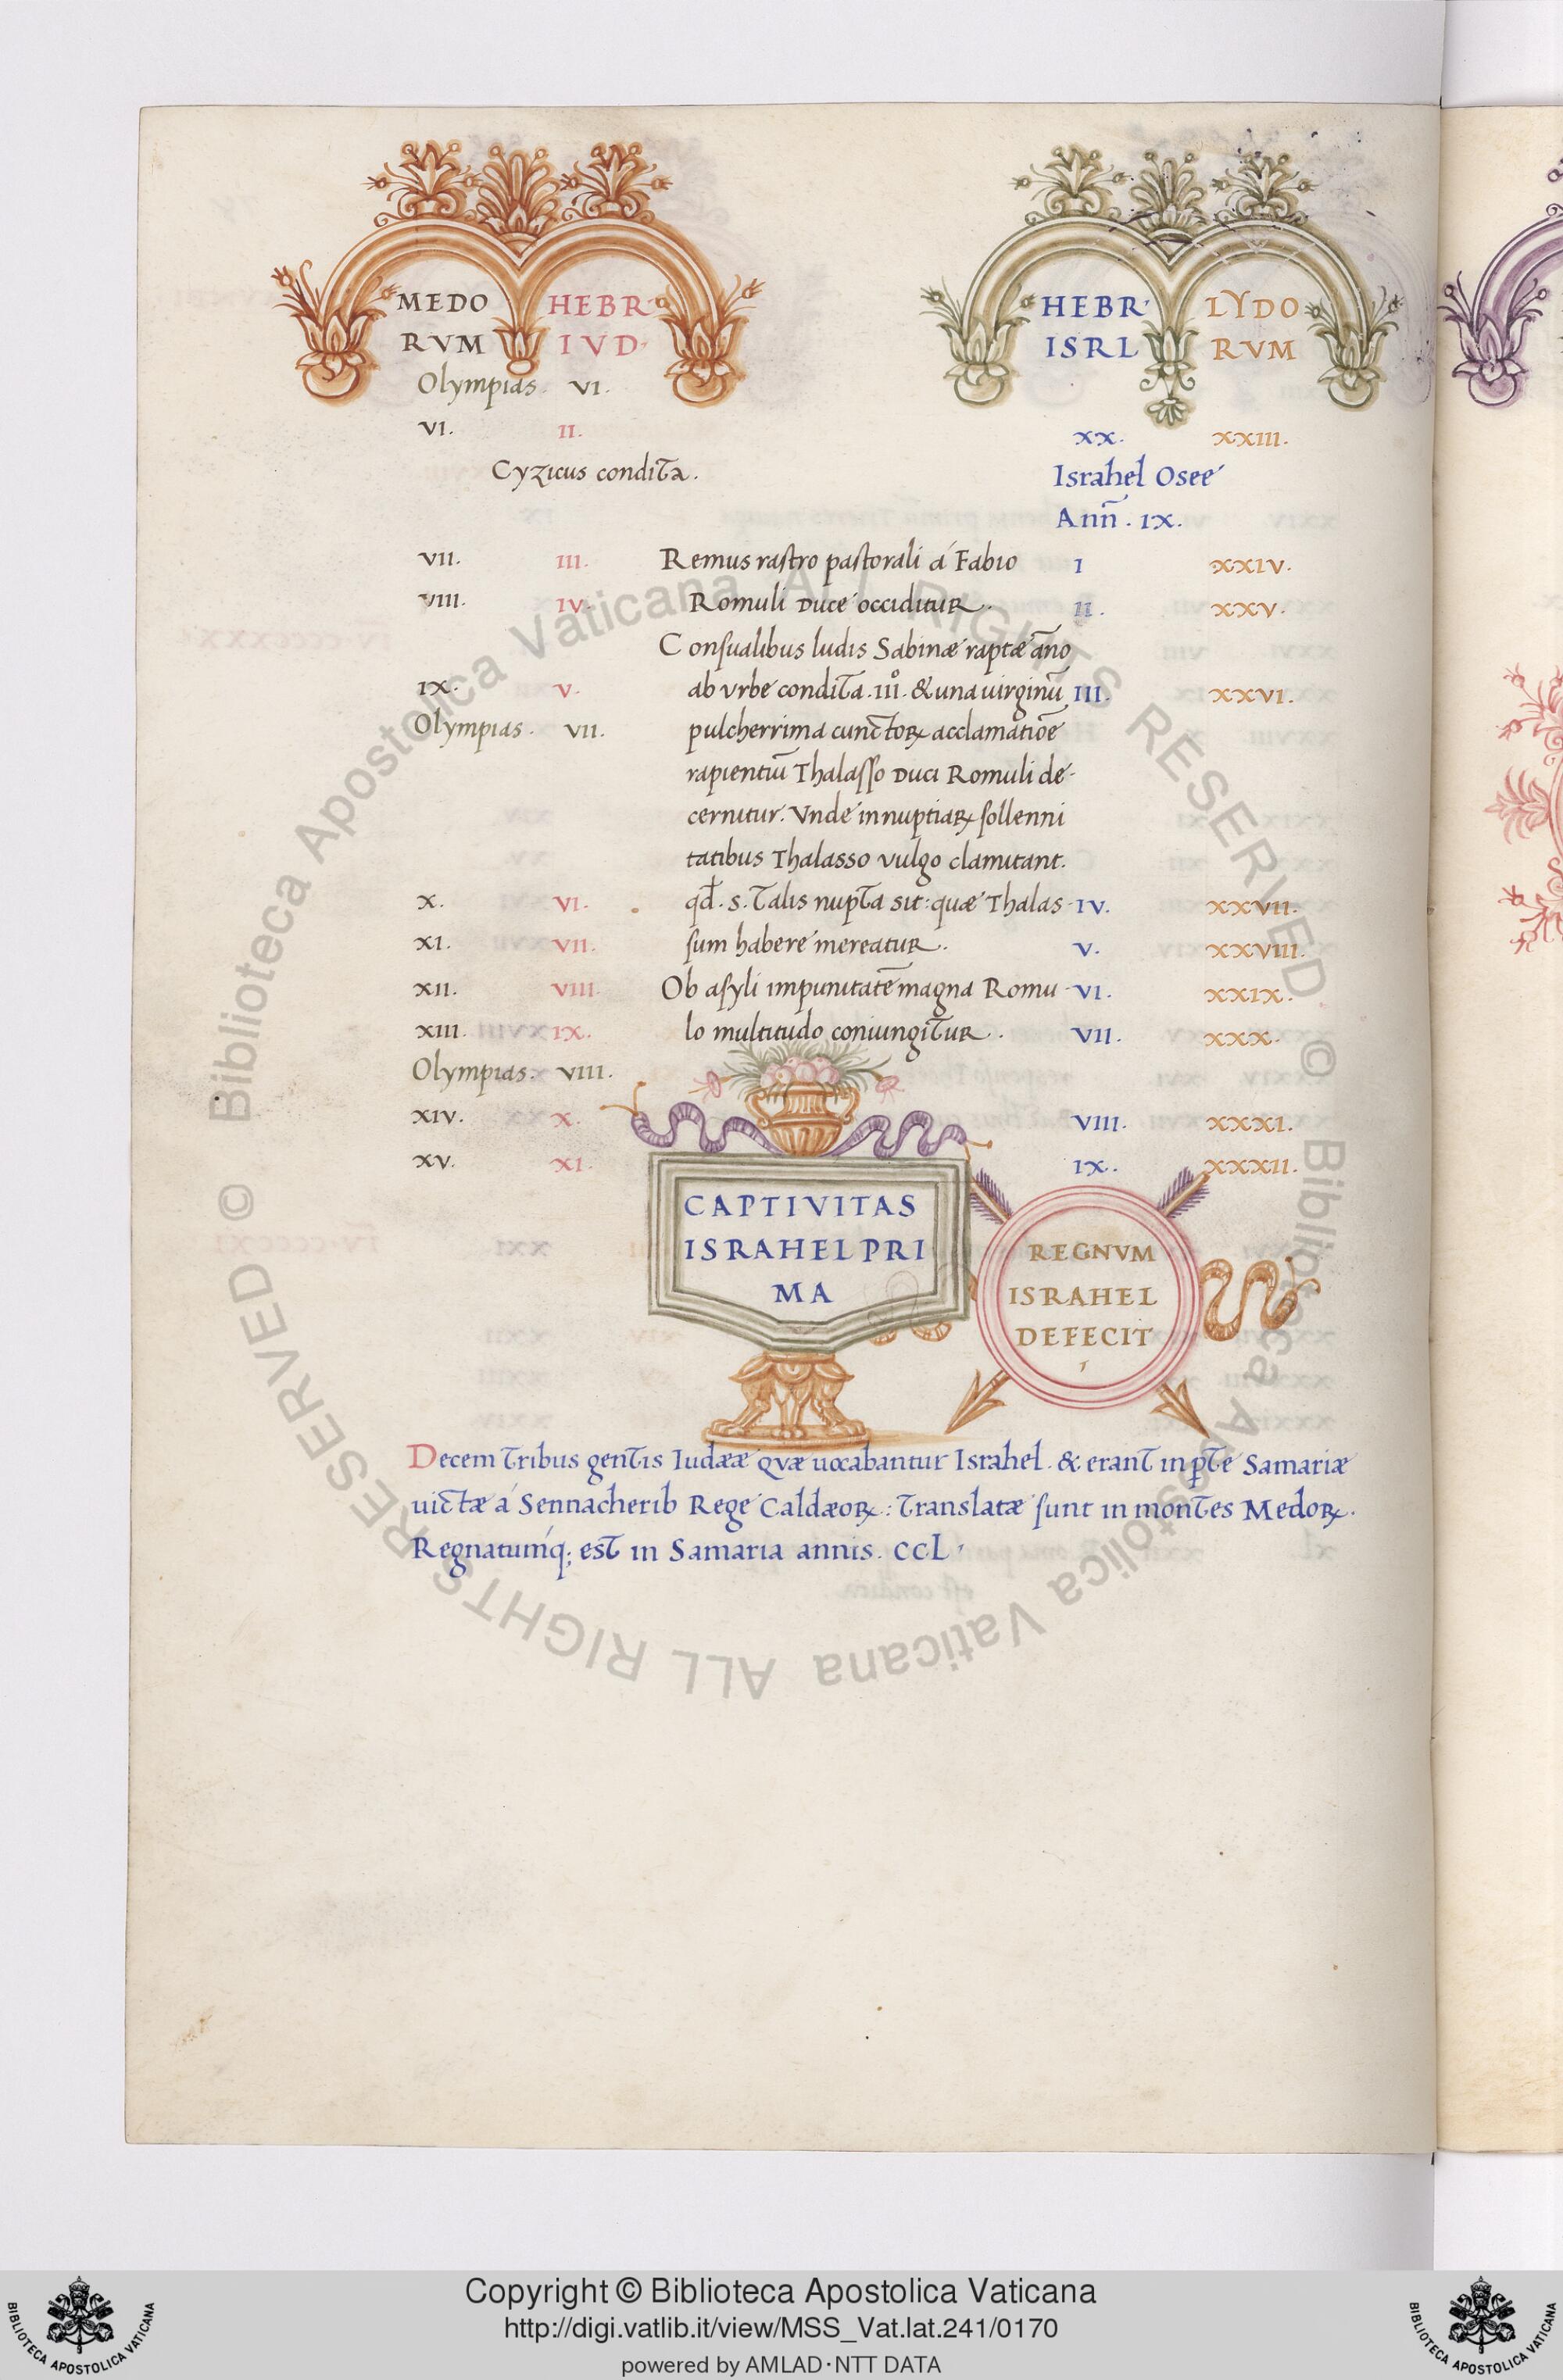 MEDO HEBR· HEBR· LYDO
RVM IVD· ISRL RVM
Olympias. VI.
VI. II. XX. XXIII.
Cyzicus condita. Israhel Osee
Ann̄. IX.
VII. III. Remus rastro pastorali á Fabio I XXIV.
VIII. IV. Romuli duce occiditur. II. XXV.
Consualibus ludis Sabinæ raptæ āno
IX. V. ab vrbe condita. IIIº. & una uirginū III. XXVI.
Olympias. VII. pulcherrima cunctoꝝ acclamatiōe
rapientiū Thalasso duci Romuli de-
cernitur. Vnde in nuptiaꝝ sollenni
tatibus Thalasso vulgo clamitant.
X. VI. qd̄. s. Talis nupta sit: quæ Thalas- IV. XXVII.
XI. VII. sum habere mereatur. V. XXVIII.
XII. VIII. Ob asyli impunitatē magna Romu- VI. XXIX.
XIII. IX. lo multitudo coniungitur. VII. XXX.
Olympias. VIII.
XIV. X. VIII. XXXI.
XV. XI. IX. XXXII.
CAPTIVITAS
ISRAHEL PRI
MA
REGNVM
ISRAHEL
DEFECIT
Decem tribus gentis Iudææ quæ uocabantur Israhel. & erant in ꝑte Samariæ
uictæ á Sennacherib Rege Caldæoꝝ: translatæ sunt in montes Medoꝝ.
Regnatumq; est in Samaria annis. CCL.
© Biblioteca Apostolica Vaticana ALL RIGHTS RESERVED © Biblioteca Apostolica Vaticana ALL RIGHTS RESERVED
Copyright © Biblioteca Apostolica Vaticana
http://digi.vatlib.it/view/MSS_Vat.lat.241/0170
powered by AMLAD·NTT DATA
BIBLIOTECA APOSTOLICA VATICANA
BIBLIOTECA APOSTOLICA VATICANA